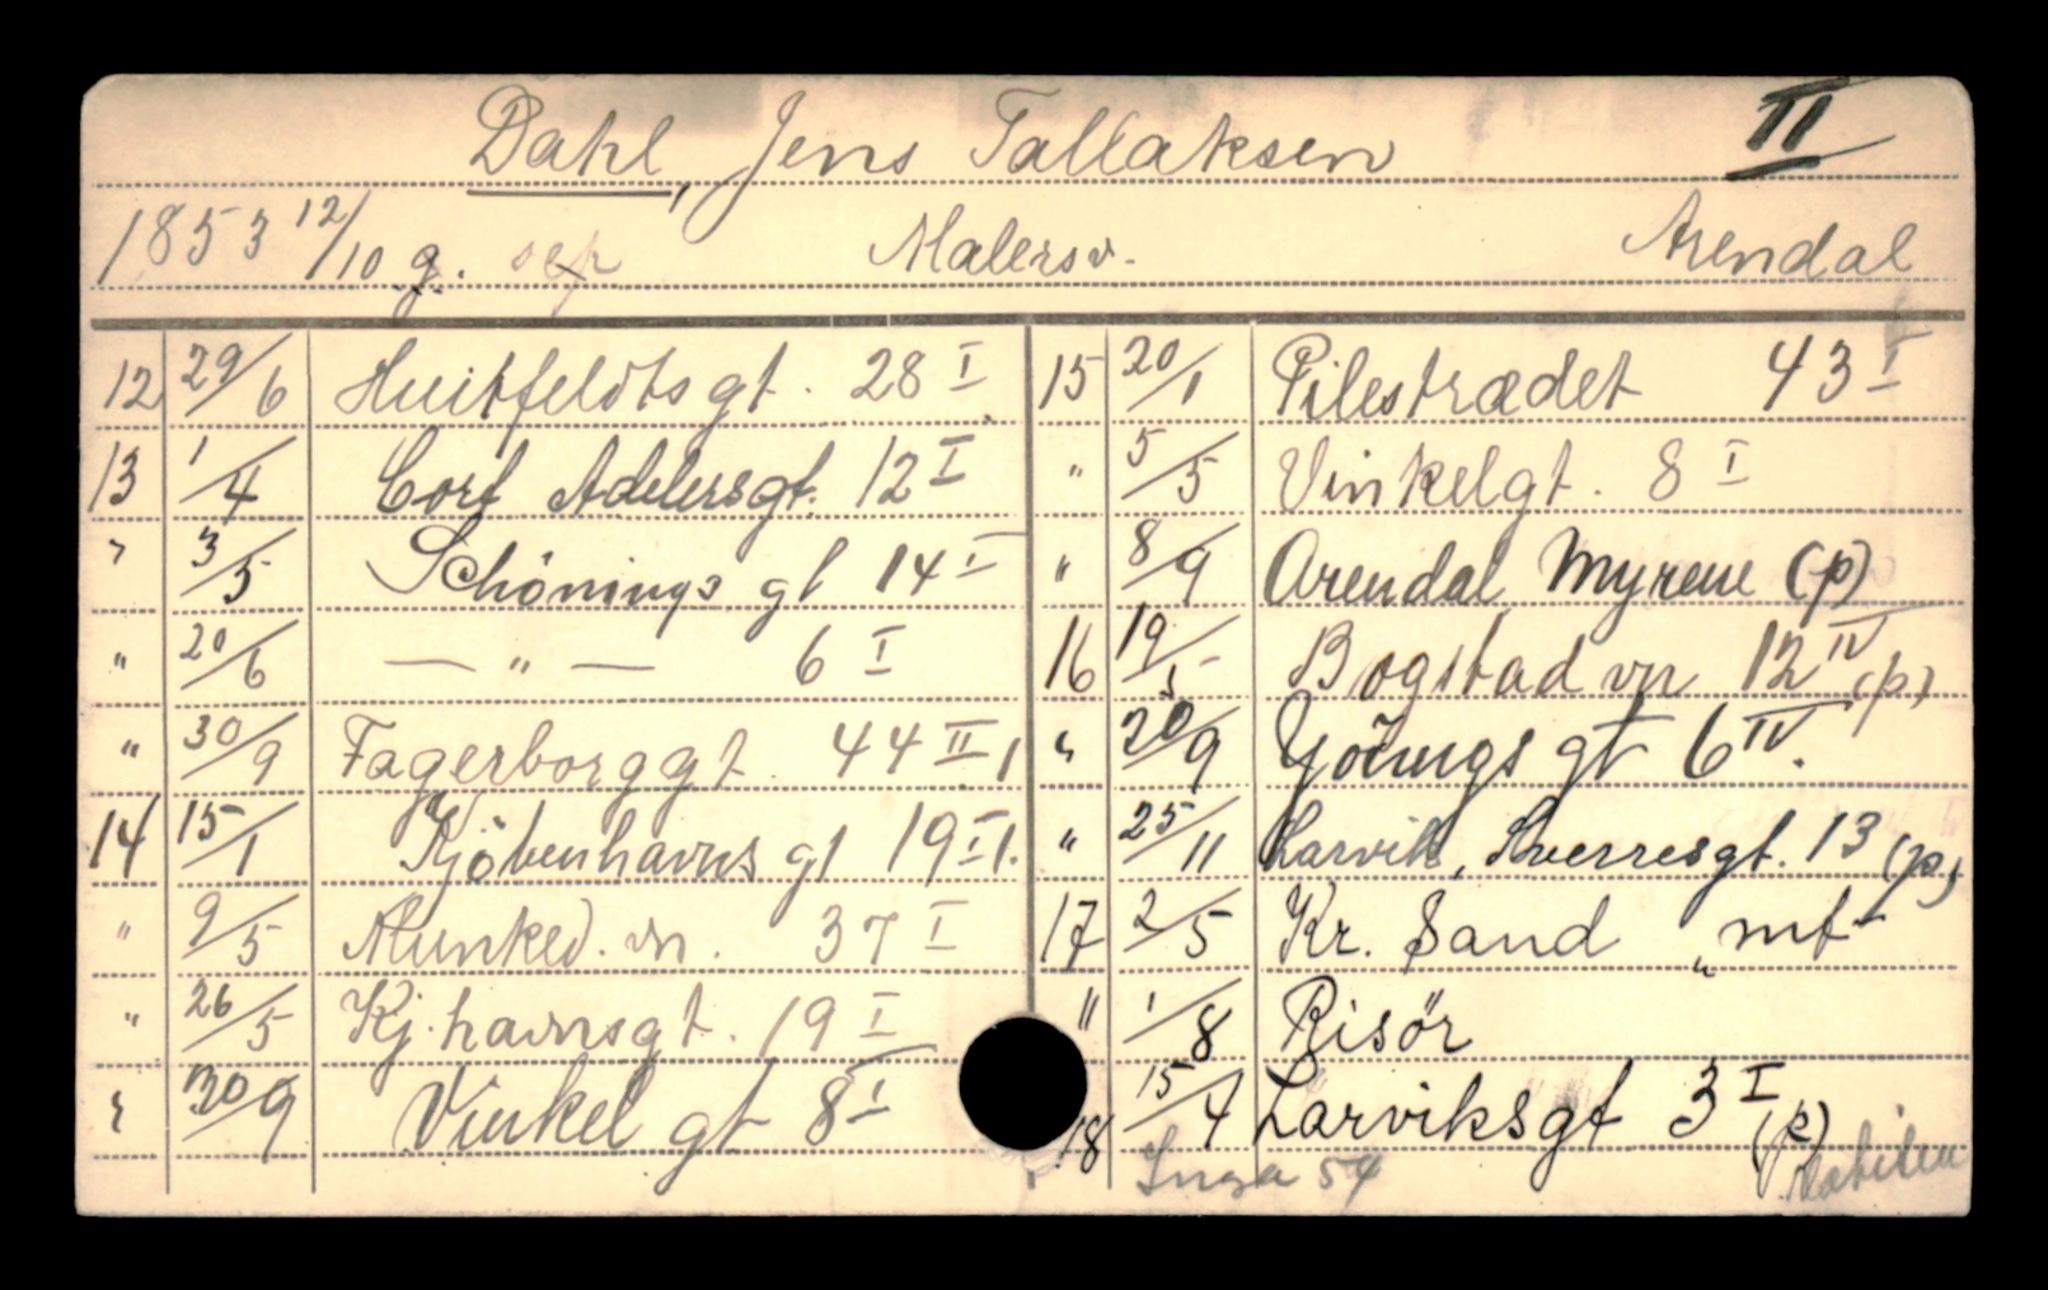 Dahl, Jens Tallaksen II
1853 12/10 g. sep Malersv. Arendal
12 29/6 Huitfeldtsgt. 28 I
13 1/4 Cort Adelersgt. 12 I
" 3/5 Schönings gt 14 I
" 20/6 — " — 6 I
" 30/9 Fagerborggt. 44 II 1
14 15/1 Kjöbenhavns gt 19 I 1.
" 9/5 Munked. vn. 37 I
" 26/5 Kj.havnsgt. 19 I
" 30/9 Vinkel gt 8 I
15 20/1 Pilestrædet 43 I
" 5/5 Vinkelgt. 8 I
" 8/9 Arendal Myrene (p)
16 19/5 Bogstad vn 12 IV (p)
" 20/9 Youngs gt 6 IV.
" 25/11 Larvik, Sverresgt. 13 (p)
17 2/5 Kr. Sand "mf"
" 1/8 Risör
18 15/4 Larviksgt 3 I (p)
Inga 54